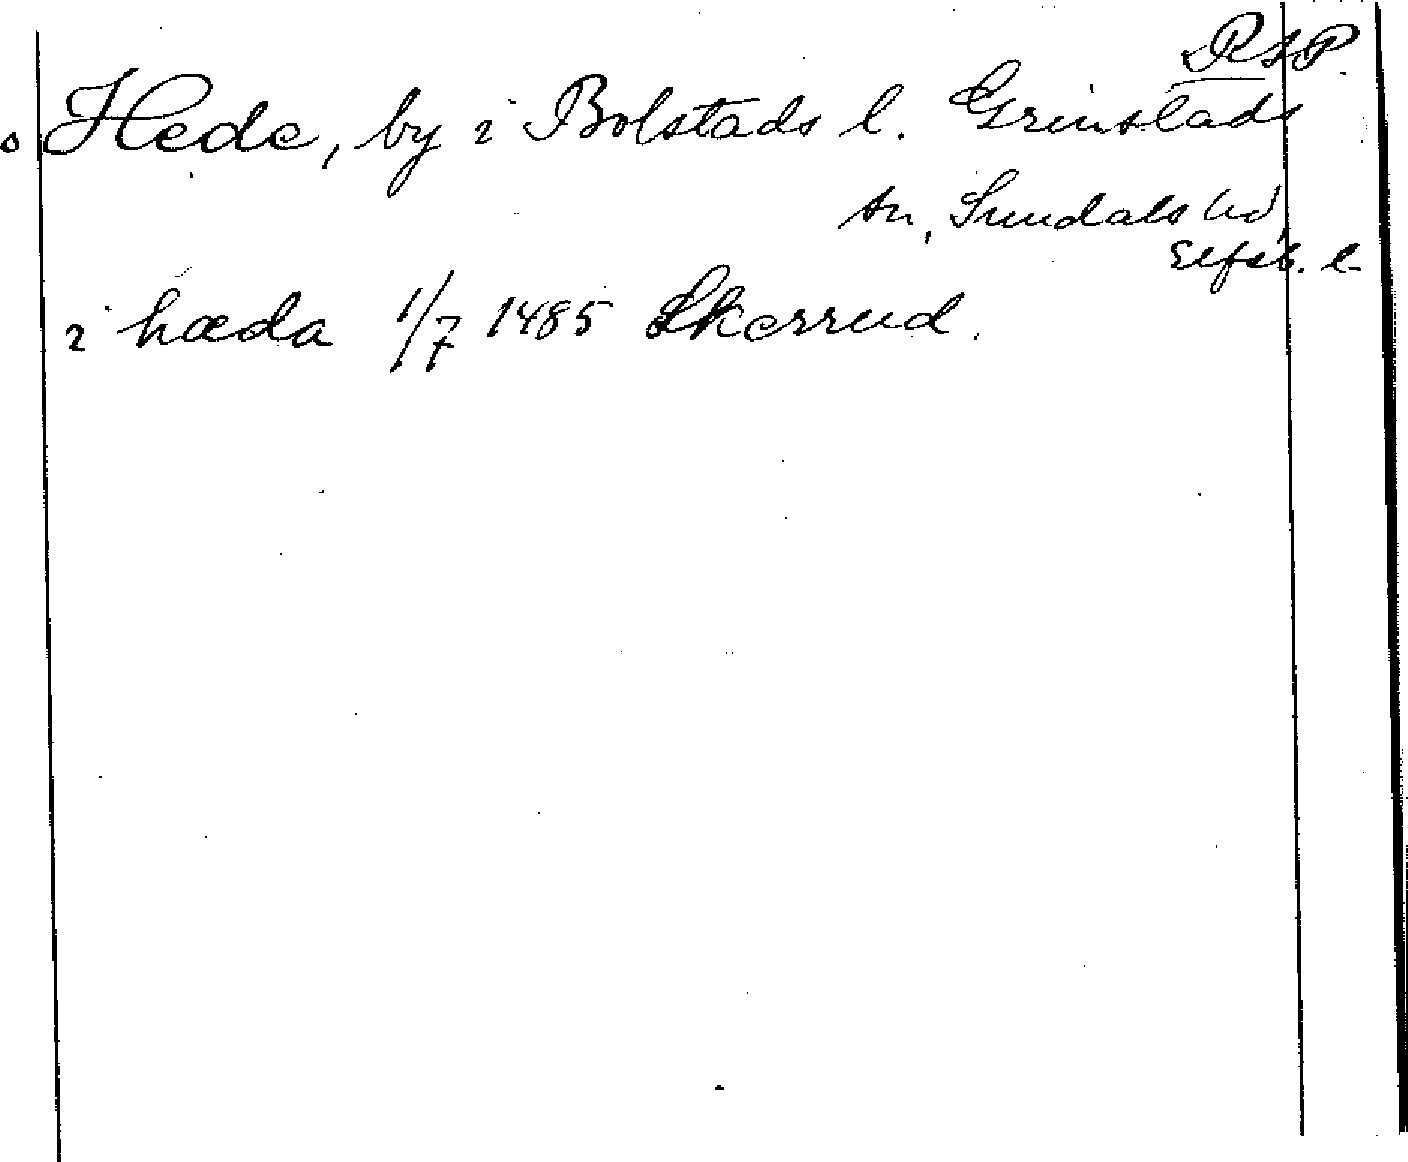 RAP
Hede, by i Bolstads l. Grinstads
sn, Sundals hd,
Elfsb. l
i hæda 1/7 1485 Skerrud.